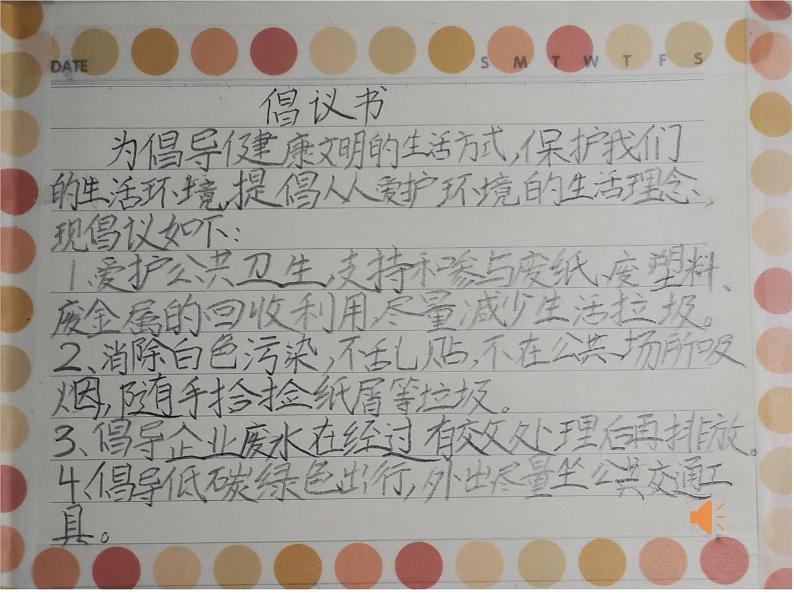 DATE
S M T W T F S
倡议书
为倡导健康文明的生活方式,保护我们
的生活环境,提倡人人爱护环境的生活理念、,
现倡议如下:
1.爱护公共卫生,支持和参与废纸、废塑料、
废金属的回收利用,尽量减少生活垃圾。
2、消除白色污染,不乱贴,不在公共场所吸
烟,随手拾捡纸屑等垃圾。
3、倡导企业废水在经过有效处理后再排放。
4、倡导低碳绿色出行,外出尽量坐公共交通工
具。